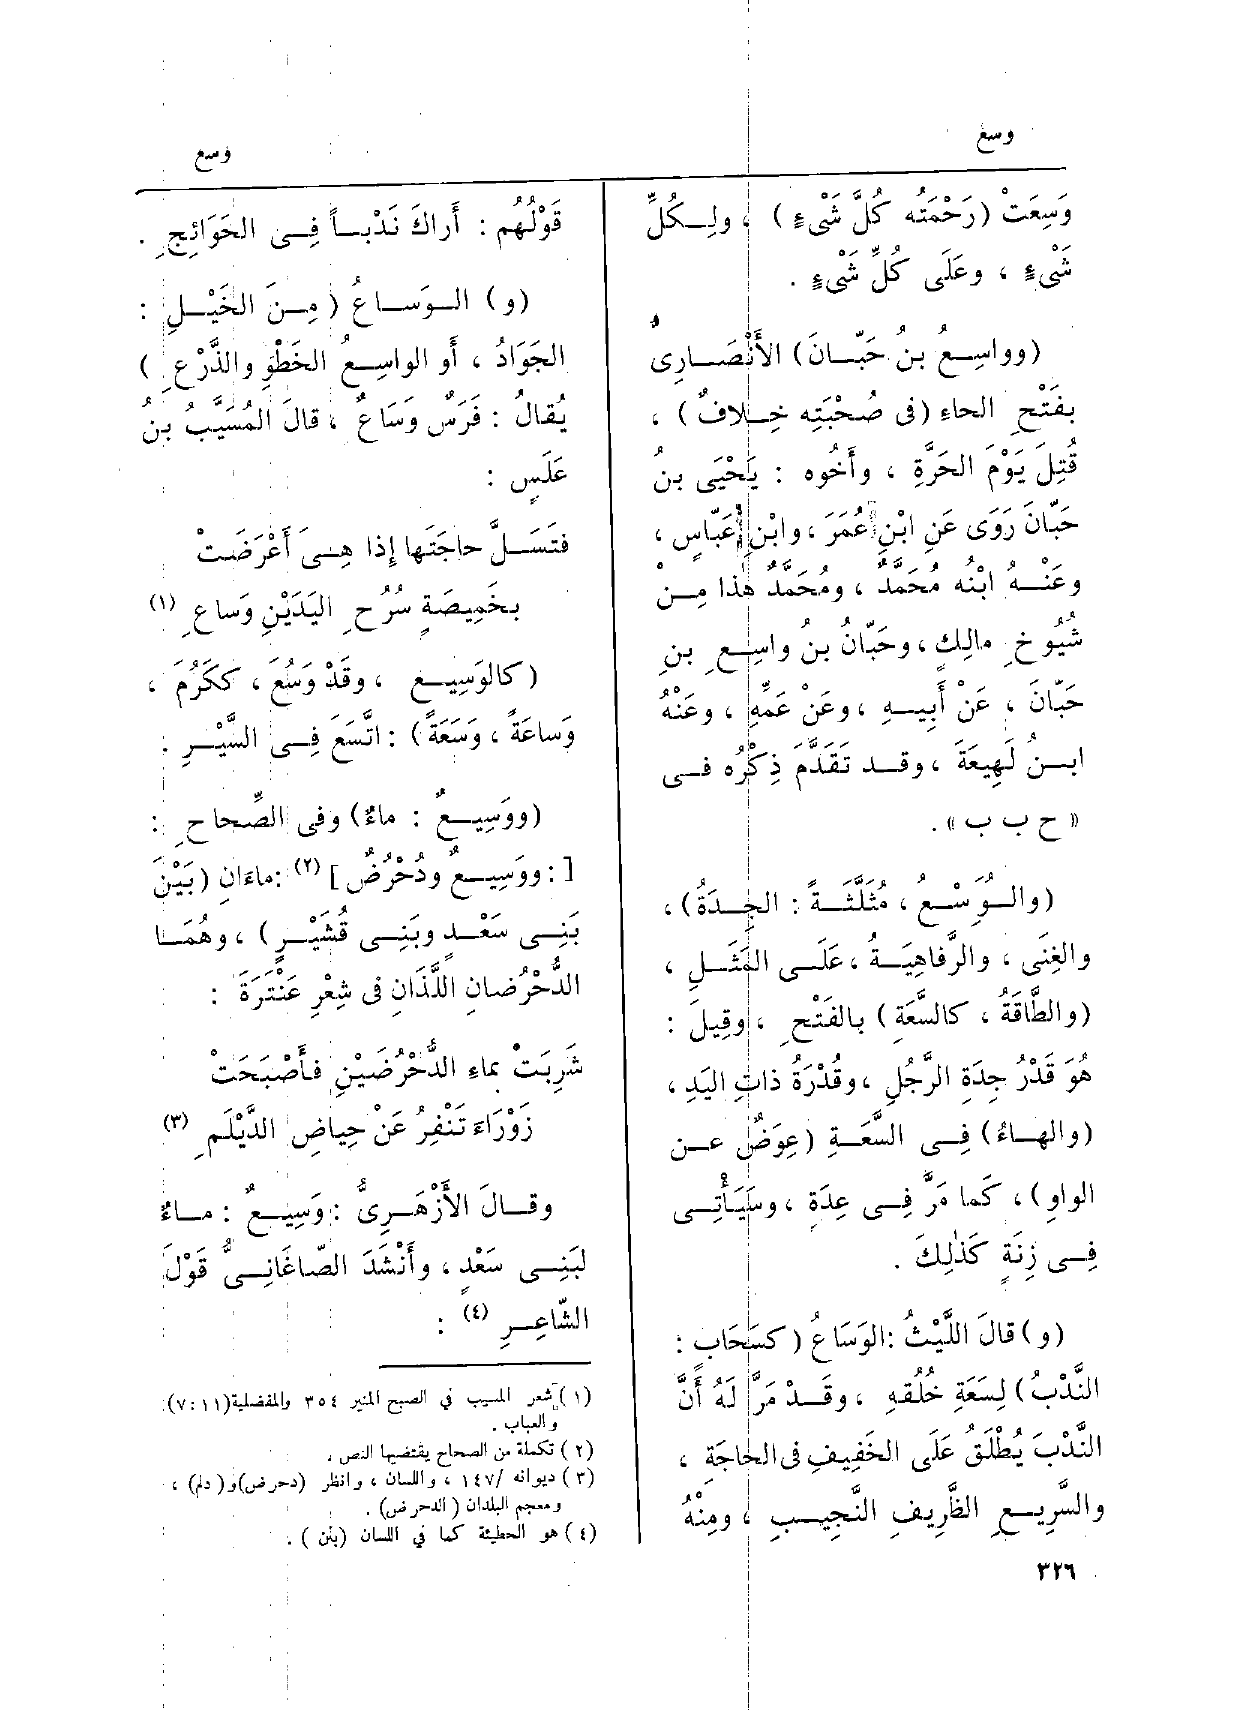 وسع
وسع
وَسِعَتْ (رَحْمَتُه كُلَّ شَىْءٍ) ، ولِـكُلِّ
شَىْءٍ ، وعَلَى كُلِّ شَىْءٍ .
(وواسِـعُ بن حَبّـانَ) الأَنْصَـارِى
بفَتْحِ الحاءِ (فى صُحْبَتِه خِـلافٌ) ،
قُتِلَ يَوْمَ الحَرَّةِ ، وأَخُوه : يَحْيَى بنُ
حَبّانَ رَوَى عَنِ ابْنِ عُمَرَ ، وابْنِ عَبّاسٍ ،
وعَنْـهُ ابْنُه مُحَمَّدٌ ، ومُحَمَّدٌ هٰذا مِـنْ
شُيُوخِ مالِكٍ ، وحَبّانُ بنُ واسِـعِ بنِ
حَبّانَ ، عَنْ أَبِيـهِ ، وعَنْ عَمِّهِ ، وعَنْهُ
ابـنُ لَهِيعَةَ ، وقـد تَقَدَّمَ ذِكْرُه فـى
« ح ب ب » .
(والـوُسْـعُ ، مُثَلَّثَـةً : الجِـدَةُ) ،
والغِنَى ، والرَّفاهِيَـةُ ، عَلَـى المَثَـلِ ،
(والطَّاقَةُ ، كالسَّعَةِ) بالفَتْحِ ، وقِيلَ :
هُوَ قَدْرُ جِدَةِ الرَّجُلِ ، وقُدْرَةُ ذاتِ اليَدِ ،
(والهـاءُ) فِـى السَّعَـةِ (عِوَضٌ عـن
الواوِ) ، كَما مَرَّ فِـى عِدَةٍ ، وسَيَأْتِـى
فِـى زِنَةٍ كَذٰلِكَ .
(و) قالَ اللَّيْثُ : الوَسَاعُ (كسَحَاب :
النَّدْبُ) لِسَعَةِ خُلُقِهِ ، وقَـدْ مَرَّ لَهُ أَنَّ
النَّدْبَ يُطْلَقُ عَلَى الخَفِيفِ فى الحاجَةِ ،
والسَّرِيـعِ الظَّرِيفِ النَّجِيـبِ ، ومِنْهُ
قَوْلُهُم : أَراكَ نَدْبـاً فِـى الحَوَائِجِ .
(و) الـوَسـاعُ (مِـنَ الخَيْـلِ :
الجَوَادُ ، أَو الواسِعُ الخَطْوِ والذَّرْعِ)
يُقالُ : فَرَسٌ وَسَاعٌ ، قالَ المُسَيَّبُ بنُ
عَلَسٍ :
فَتَسَـلَّ حاجَتَها إِذا هِـىَ أَعْرَضَتْ
بخَمِيصَةٍ سُرُحِ اليَدَيْنِ وَساعِ (١)
(كالوَسِيـعِ ، وقَدْ وَسُعَ ، ككَرُمَ ،
وَساعَةً ، وَسَعَةً) : اتَّسَعَ فِـى السَّيْـرِ .
(ووَسِيـعٌ : ماءٌ) وفى الصِّحاحِ :
[ : ووَسِيـعٌ ودُحْرُضٌ ] (٢) : ماءَانِ (بَيْنَ
بَنِـى سَعْـدٍ وبَنِـى قُشَيْـرٍ) ، وهُمَـا
الدُّحْرُضانِ اللَّذَانِ فى شِعْرِ عَنْتَرَةَ :
شَرِبَتْ بماءِ الدُّحْرُضَيْنِ فأَصْبَحَتْ
زَوْرَاءَ تَنْفِرُ عَنْ حِياضِ الدَّيْلَمِ (٣)
وقـالَ الأَزْهَـرِىُّ : وَسِيـعٌ : مـاءٌ
لبَنِـى سَعْدٍ ، وأَنْشَدَ الصّاغَانِـىُّ قَوْلَ
الشّاعِـرِ (٤) :
(١) شعر المسيب في الصبح المنير ٣٥٤ والمفضلية (١١ : ٧)
والعباب .
(٢) تكملة من الصحاح يقتضيها النص .
(٣) ديوانه /١٤٧ ، واللسان ، وانظر (دحرض) و (دلم) ،
ومعجم البلدان (الدحرض) .
(٤) هو الحطيئة كما في اللسان (بنن) .
٣٢٦